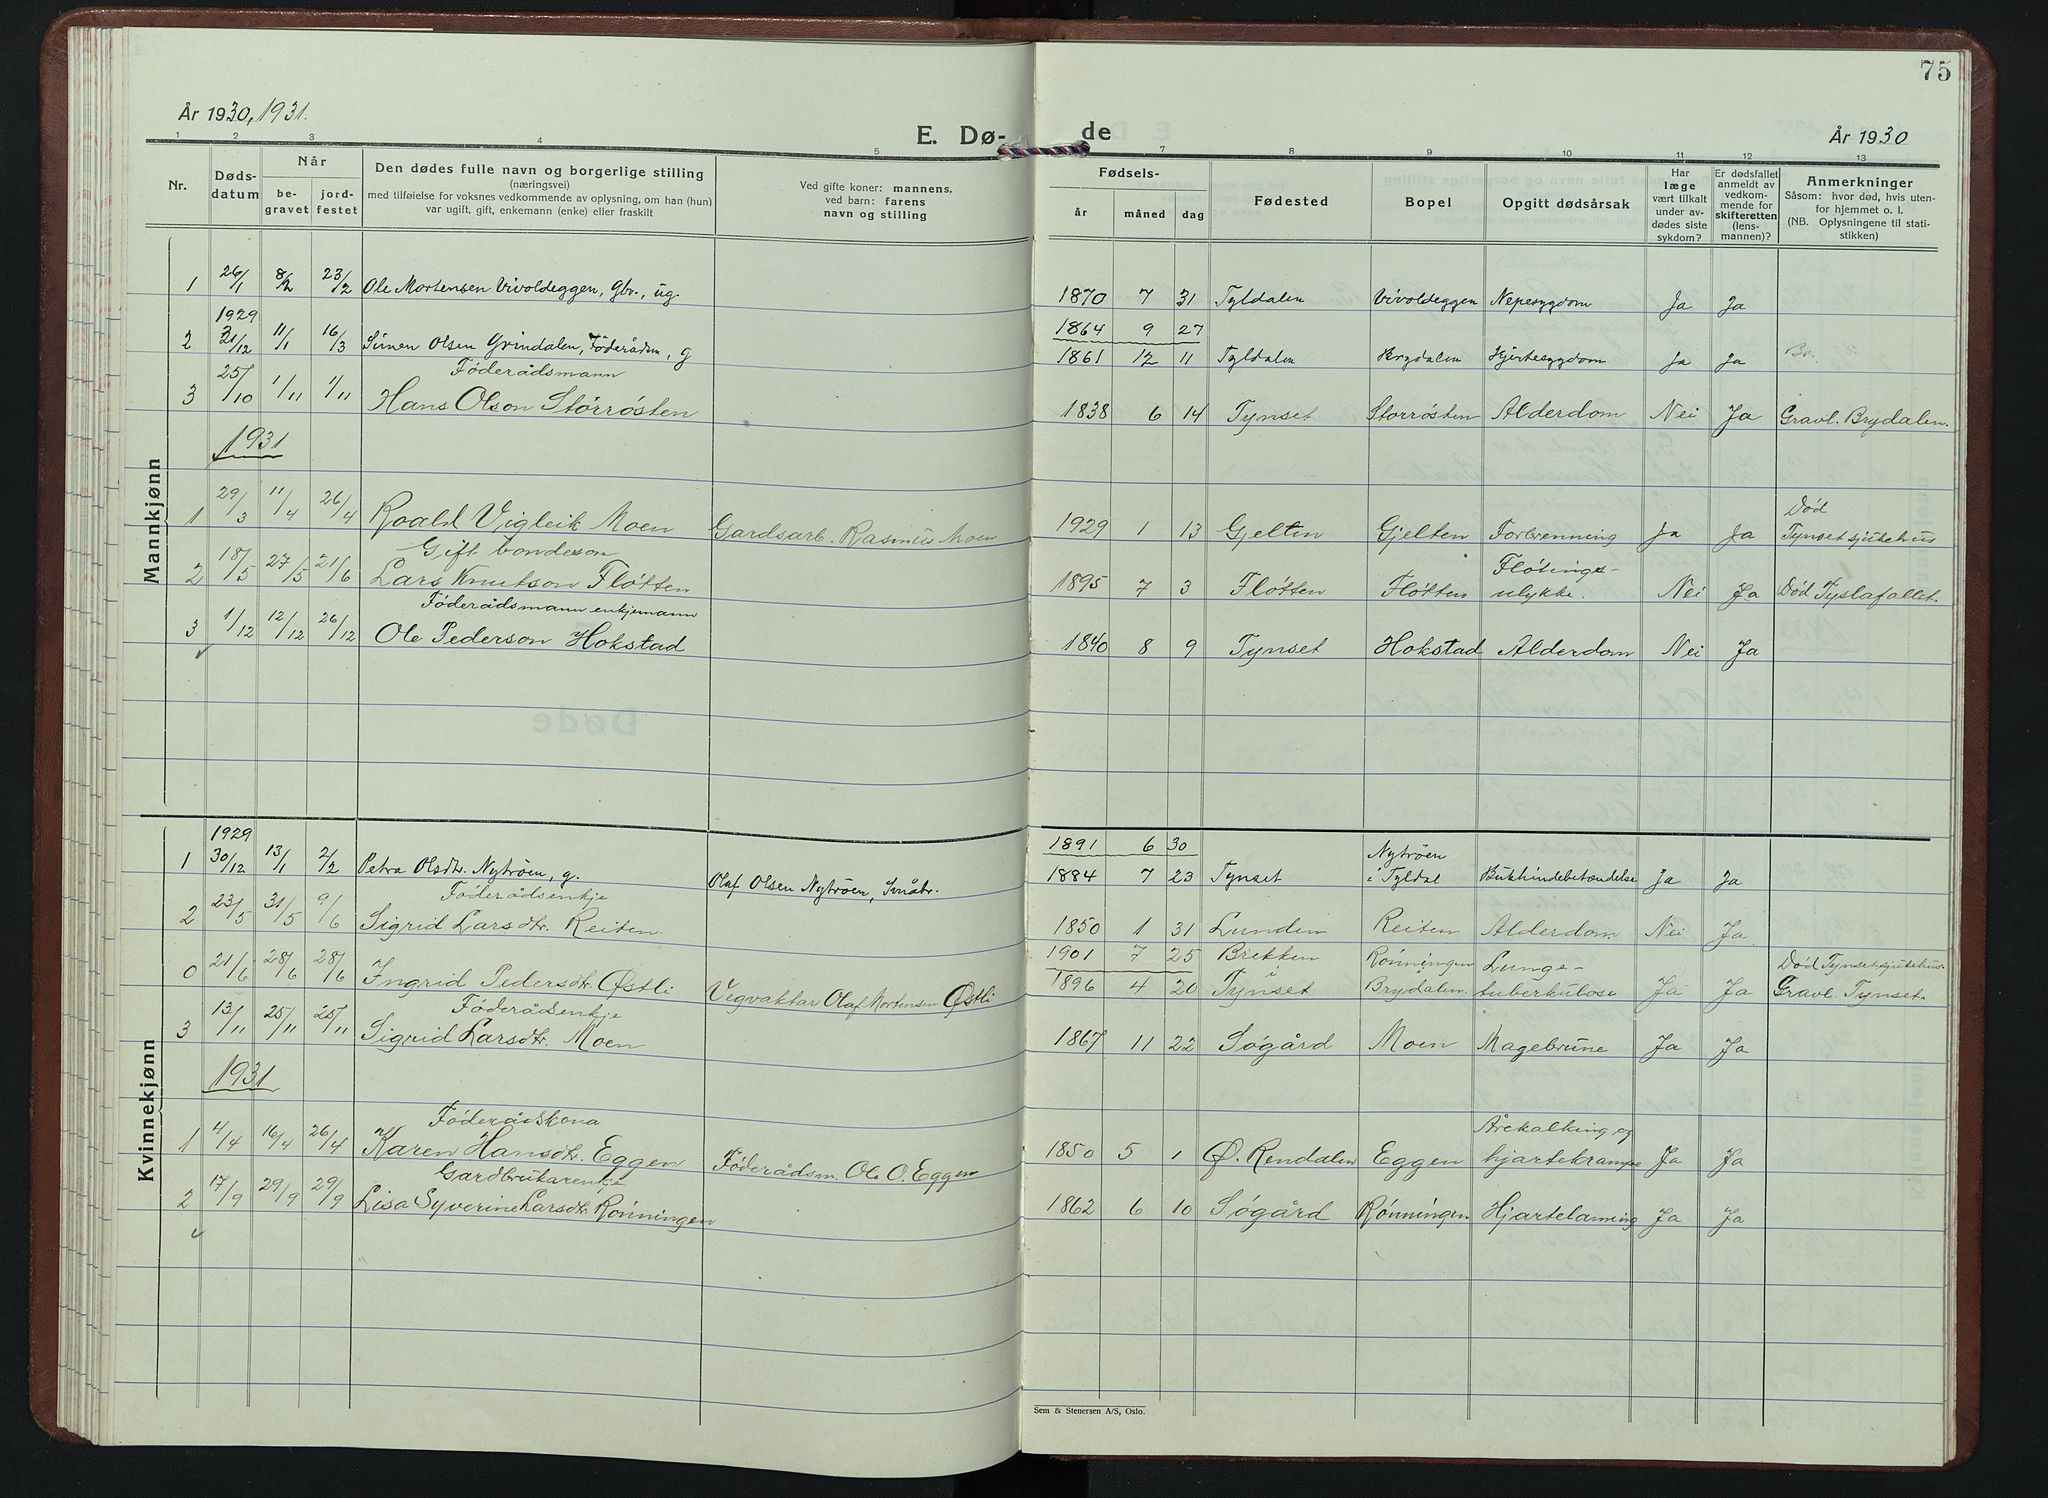 År 1930, 1931.
E. Dø-
1 2 3 4 5
Nr.
Døds-
datum
Når
be-
gravet
jord-
festet
Den dødes fulle navn og borgerlige stilling
(næringsvei)
med tilføielse for voksnes vedkommende av oplysning, om han (hun)
var ugift, gift, enkemann (enke) eller fraskilt
Ved gifte koner: mannens,
ved barn: farens
navn og stilling
Mannkjønn
1 26/1 8/2 23/2 Ole Mortensen Vivoldeggen, Gbr., ug.
1929
2 31/12 11/1 16/3 Simen Olsen Grindalen, Føderådm, g
Føderådsmann
3 25/10 1/11 1/11 Hans Olson Storrøsten
1931
1 29/3 11/4 26/4 Roald Vigleik Moen Gardsarb. Rasmus Moen
Gift bondeson
2 18/5 27/5 21/6 Lars Knutson Fløtten
Føderådsmann enkjemann
3 1/12 12/12 26/12 Ole Pederson Hokstad
Kvinnekjønn
1929
1 30/12 13/1 2/2 Petra Olsdtr. Nytrøen, g. Olaf Olsen Nytrøen, Småbr.
Føderådsenkje
2 23/5 31/5 9/6 Sigrid Larsdtr. Reiten
0 21/6 28/6 28/6 Ingrid Pedersdtr. Østli Vegvaktar Olaf Mortensen Østli
Føderådsenkje
3 13/11 25/11 25/11 Sigrid Larsdtr. Moen
1931
Føderådskona
1 4/4 16/4 26/4 Karen Hansdtr. Eggen Føderådsm. Ole O. Eggen
Gardbrukarenkje
2 17/9 29/9 29/9 Lisa Syverine Larsdtr. Rønningen
75
de
År 1930
7 8 9 10 11 12 13
Fødsels-
år måned dag
Fødested
Bopel
Opgitt dødsårsak
Har
læge
vært tilkalt
under av-
dødes siste
sykdom?
Er dødsfallet
anmeldt av
vedkom-
mende for
skifteretten
(lens-
mannen)?
Anmerkninger
Såsom: hvor død, hvis uten-
for hjemmet o. l.
(NB. Oplysningene til stati-
stikken)
1870 7 31 Tyldalen Vivoldeggen Nepesygdom Ja Ja
1864 9 27
1861 12 11 Tyldalen Brydalen Hjertesygdom Ja Ja Br.
1838 6 14 Tynset Storrøsten Alderdom Nei Ja Gravl. Brydalen.
Død
1929 1 13 Gjelten Gjelten Forbrenning Ja Ja Tynset sjukehus
Fløtings-
1895 7 3 Fløtten Fløtten ulykke. Nei Ja Død Tyslafallet.
1840 8 9 Tynset Hokstad Alderdom Nei Ja
1891 6 30 Nytrøen
1884 7 23 Tynset i Tyldal Bukhindebetændelse Ja Ja
1850 1 31 Lunden Reiten Alderdom Nei Ja
1901 7 25 Brekken Rønningen Lunge- Død Tynset sjukehus
1896 4 20 i Tynset Brydalen. tuberkulose Ja Ja Gravl. Tynset.
1867 11 22 Søgård Moen Magebrune Ja Ja
Årekalking og
1850 5 1 Ø. Rendalen Eggen hjartekrampe Ja Ja
1862 6 10 Søgård Rønningen Hjartelamning Ja Ja
Sem & Stenersen A/S, Oslo.